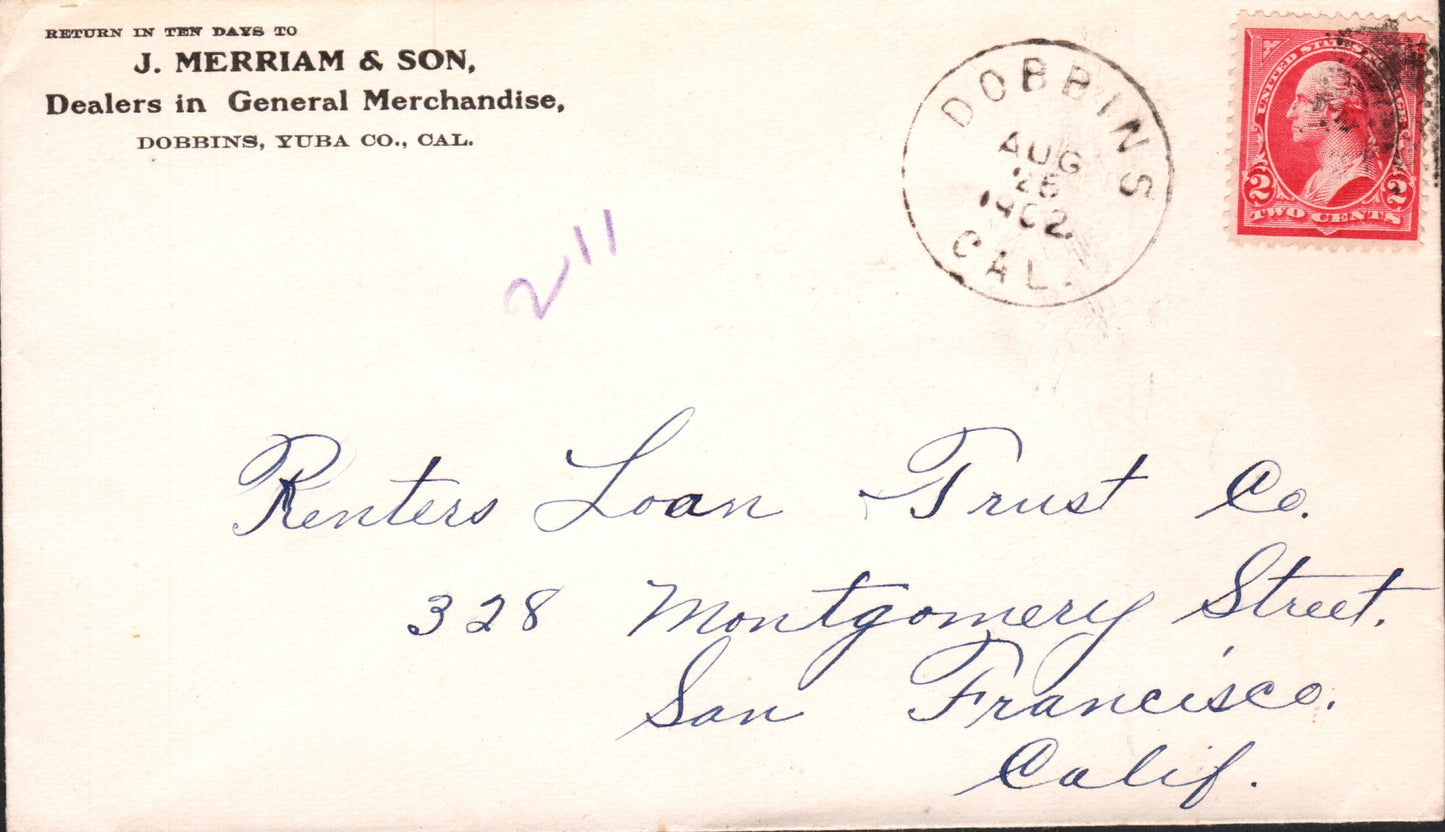 RETURN IN TEN DAYS TO
J. MERRIAM & SON,
Dealers in General Merchandise,
DOBBINS, YUBA CO., CAL.
DOBBINS
AUG
25
1902
CAL.
UNITED STATES POSTAGE
2 2
TWO CENTS
211
Renters Loan Trust Co.
328 Montgomery Street.
San Francisco.
Calif.